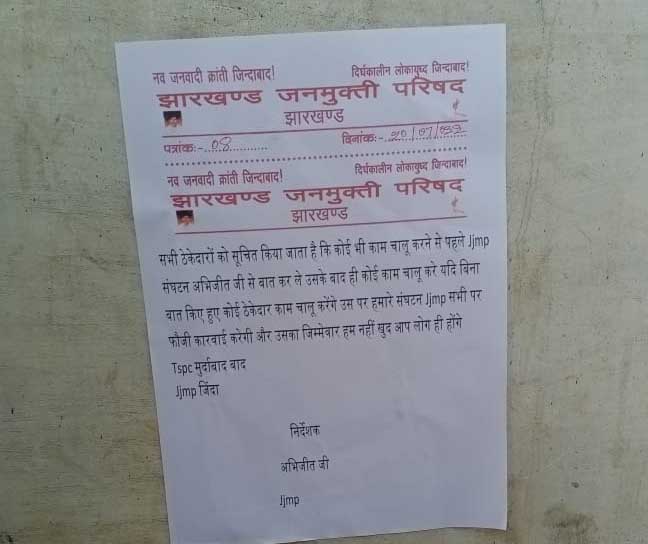 नव जनवादी क्रांती जिन्दाबाद! दिर्घकालीन लोकायुध्द जिन्दाबाद!
झारखण्ड जनमुक्ती परिषद
झारखण्ड
पत्रांक:- 08 दिनांक:- 20/07/022
नव जनवादी क्रांती जिन्दाबाद! दिर्घकालीन लोकायुध्द जिन्दाबाद!
झारखण्ड जनमुक्ती परिषद
झारखण्ड
सभी ठेकेदारों को सूचित किया जाता है कि कोई भी काम चालू करने से पहले Jjmp
संघटन अभिजीत जी से बात कर ले उसके बाद ही कोई काम चालू करे यदि बिना
बात किए हुए कोई ठेकेदार काम चालू करेंगे उस पर हमारे संघटन Jjmp सभी पर
फौजी कारवाई करेगी और उसका जिम्मेवार हम नहीं खुद आप लोग ही होंगे
Tspc मुर्दाबाद बाद
Jjmp जिंदा
निर्देशक
अभिजीत जी
Jjmp